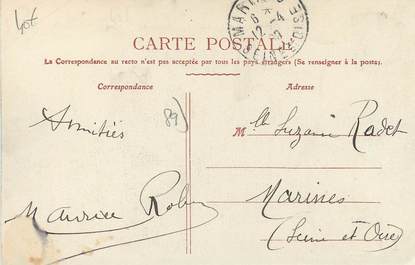 Lot
MARINES
6
12-4
SEINE-ET-OISE
CARTE POSTALE
La Correspondance au recto n'est pas acceptée par tous les pays étrangers (Se renseigner à la poste).
Correspondance
Adresse
Amitiés
89
Maurice Robin
Mlle Suzanne Radet
Marines
(Seine et Oise)